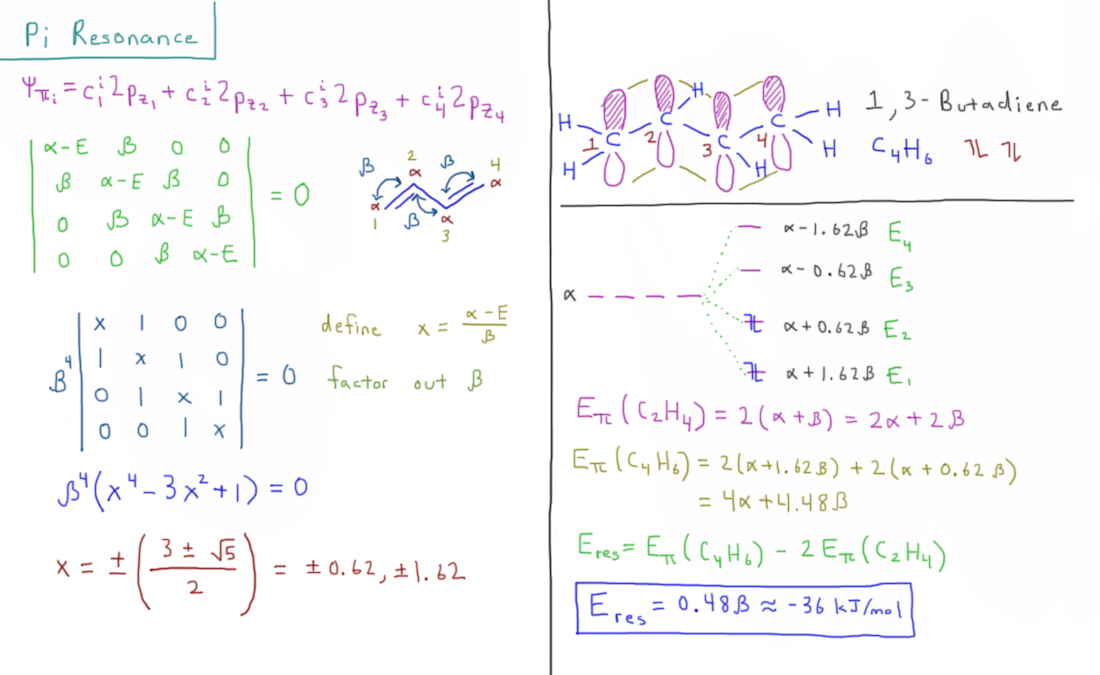 Pi Resonance
Ψπᵢ = c₁ⁱ2p_z₁ + c₂ⁱ2p_z₂ + c₃ⁱ2p_z₃ + c₄ⁱ2p_z₄
| α-E β 0 0 |
| β α-E β 0 | = 0
| 0 β α-E β |
| 0 0 β α-E |
β 2 α β 4 α
α 1 β α 3
β⁴ | x 1 0 0 |
| 1 x 1 0 | = 0
| 0 1 x 1 |
| 0 0 1 x |
define x = (α-E)/β
factor out β
β⁴(x⁴ - 3x² + 1) = 0
x = ± ( (3 ± √5)/2 ) = ± 0.62, ± 1.62
H H 1 C 2 C H 3 C H 4 C H H
1,3-Butadiene
C₄H₆ ⥮ ⥮
α
α-1.62β E₄
α-0.62β E₃
α+0.62β E₂
α+1.62β E₁
Eπ(C₂H₄) = 2(α+β) = 2α+2β
Eπ(C₄H₆) = 2(α+1.62β) + 2(α+0.62β)
= 4α+4.48β
E_res = Eπ(C₄H₆) - 2Eπ(C₂H₄)
E_res = 0.48β ≈ -36 kJ/mol